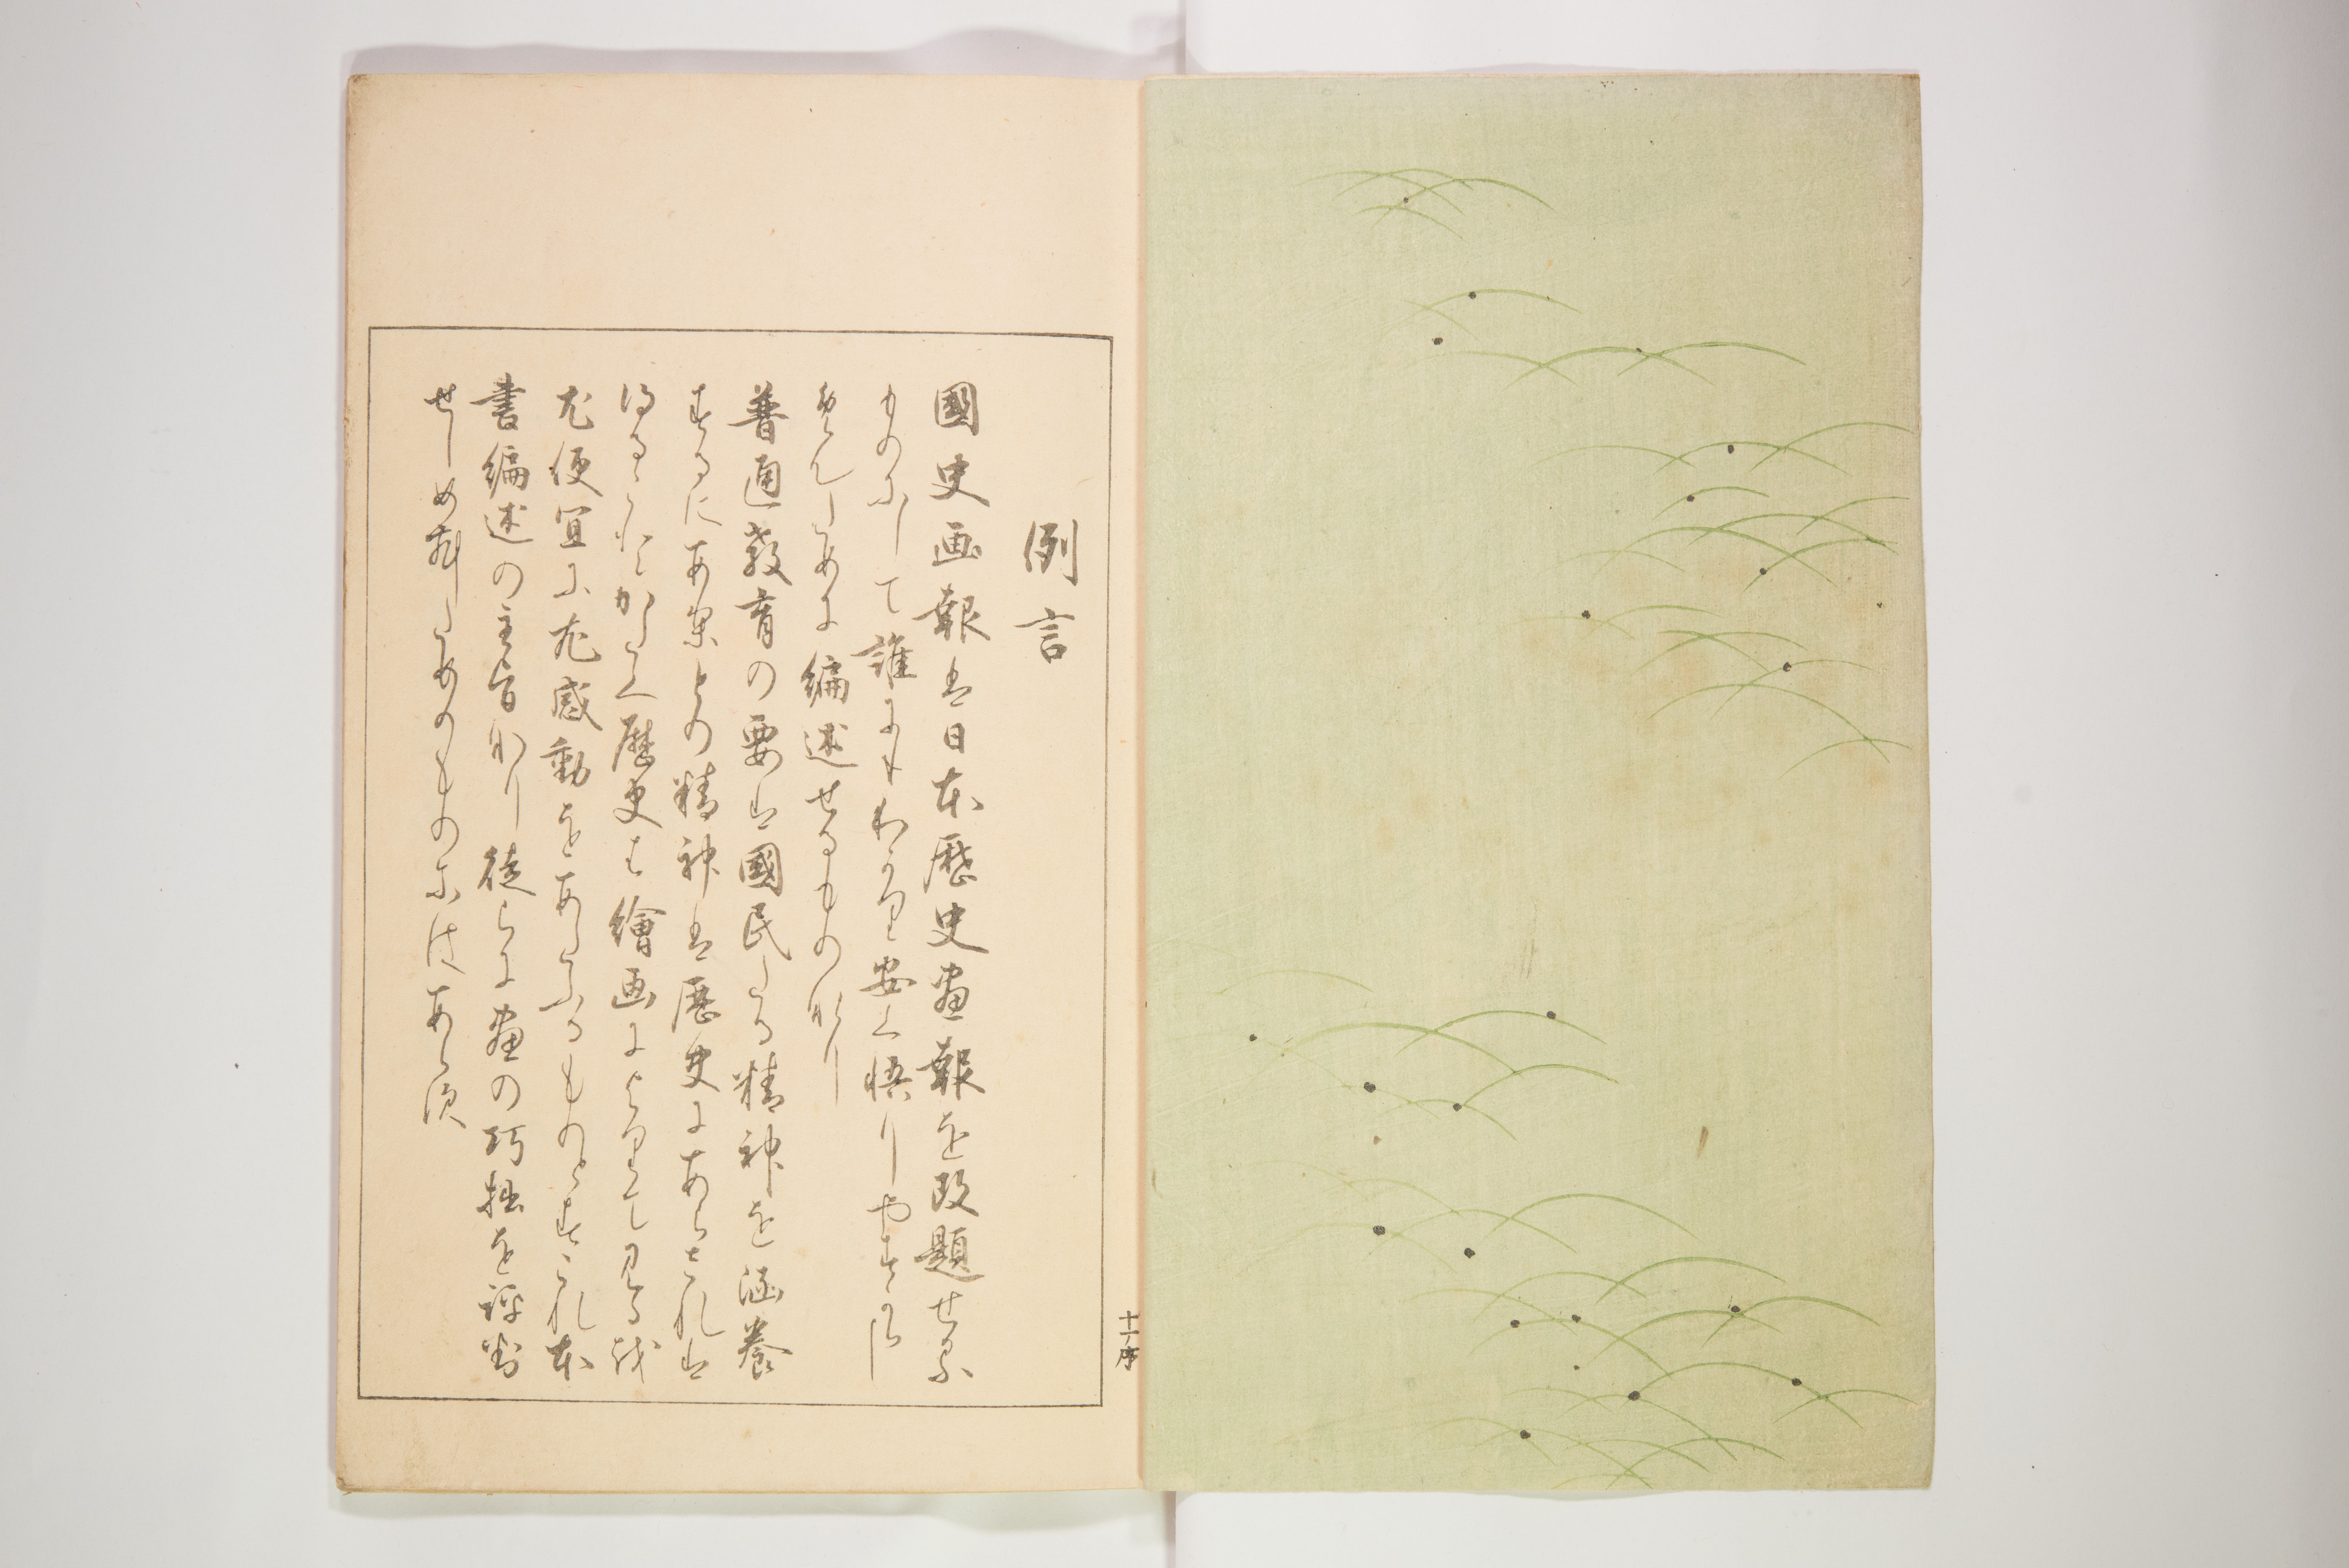 例言
國史画報は日本歴史畫報を改題せる
ものにして誰にもわかり安く悟りやすか
らしめんために編述せるものなり
普通教育の要は國民たる精神を涵養
するにあり其精神は歴史にあらされは
得ることかたく歴史は繪画によりて見るを
尤便宜に尤感動をあたふるものとすこれ本
書編述の主旨なり徒らに畫の巧拙を評
せしめんためのものにはあらす
十ノ序